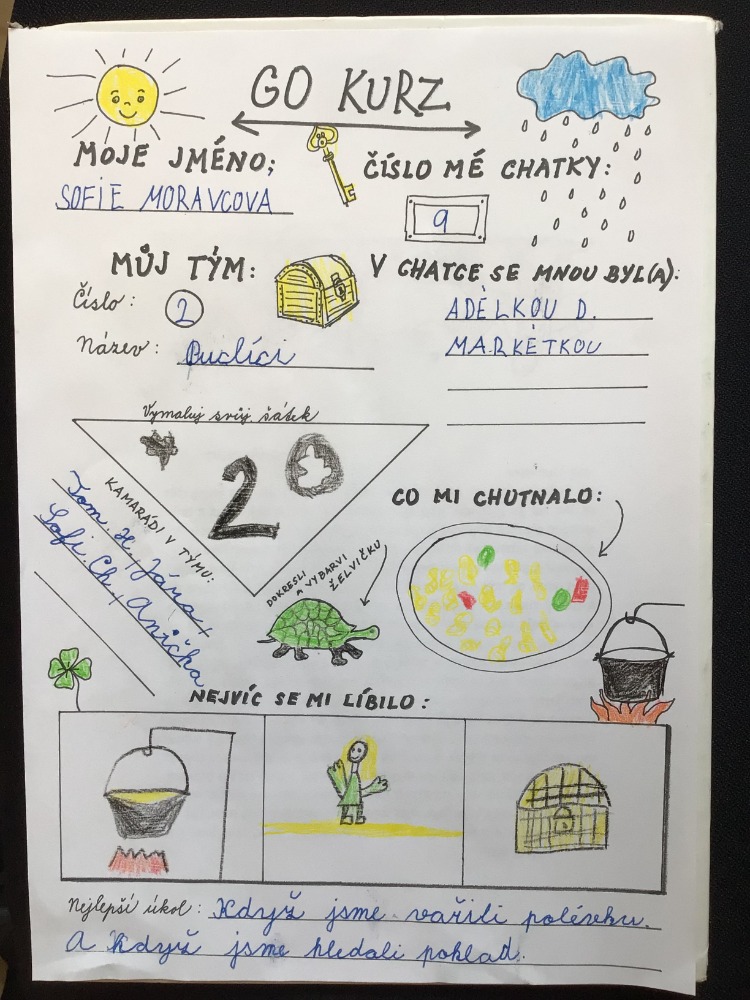 GO KURZ
MOJE JMÉNO;
SOFIE MORAVCOVA
ČÍSLO MÉ CHATKY:
9
MŮJ TÝM:
Číslo: 2
Název: Buclíci
V CHATCE SE MNOU BYL(A):
ADÉLKOU D.
MARKÉTKOU
Vymaluj svůj šátek
2
KAMARÁDI V TÝMU:
Tom H, Jára,
Sofi Ch, Anička
DOKRESLI
A VYBARVI
ŽELVIČKU
CO MI CHUTNALO:
NEJVÍC SE MI LÍBILO:
Nejlepší úkol: Když jsme vařili polévku.
A když jsme hledali poklad.